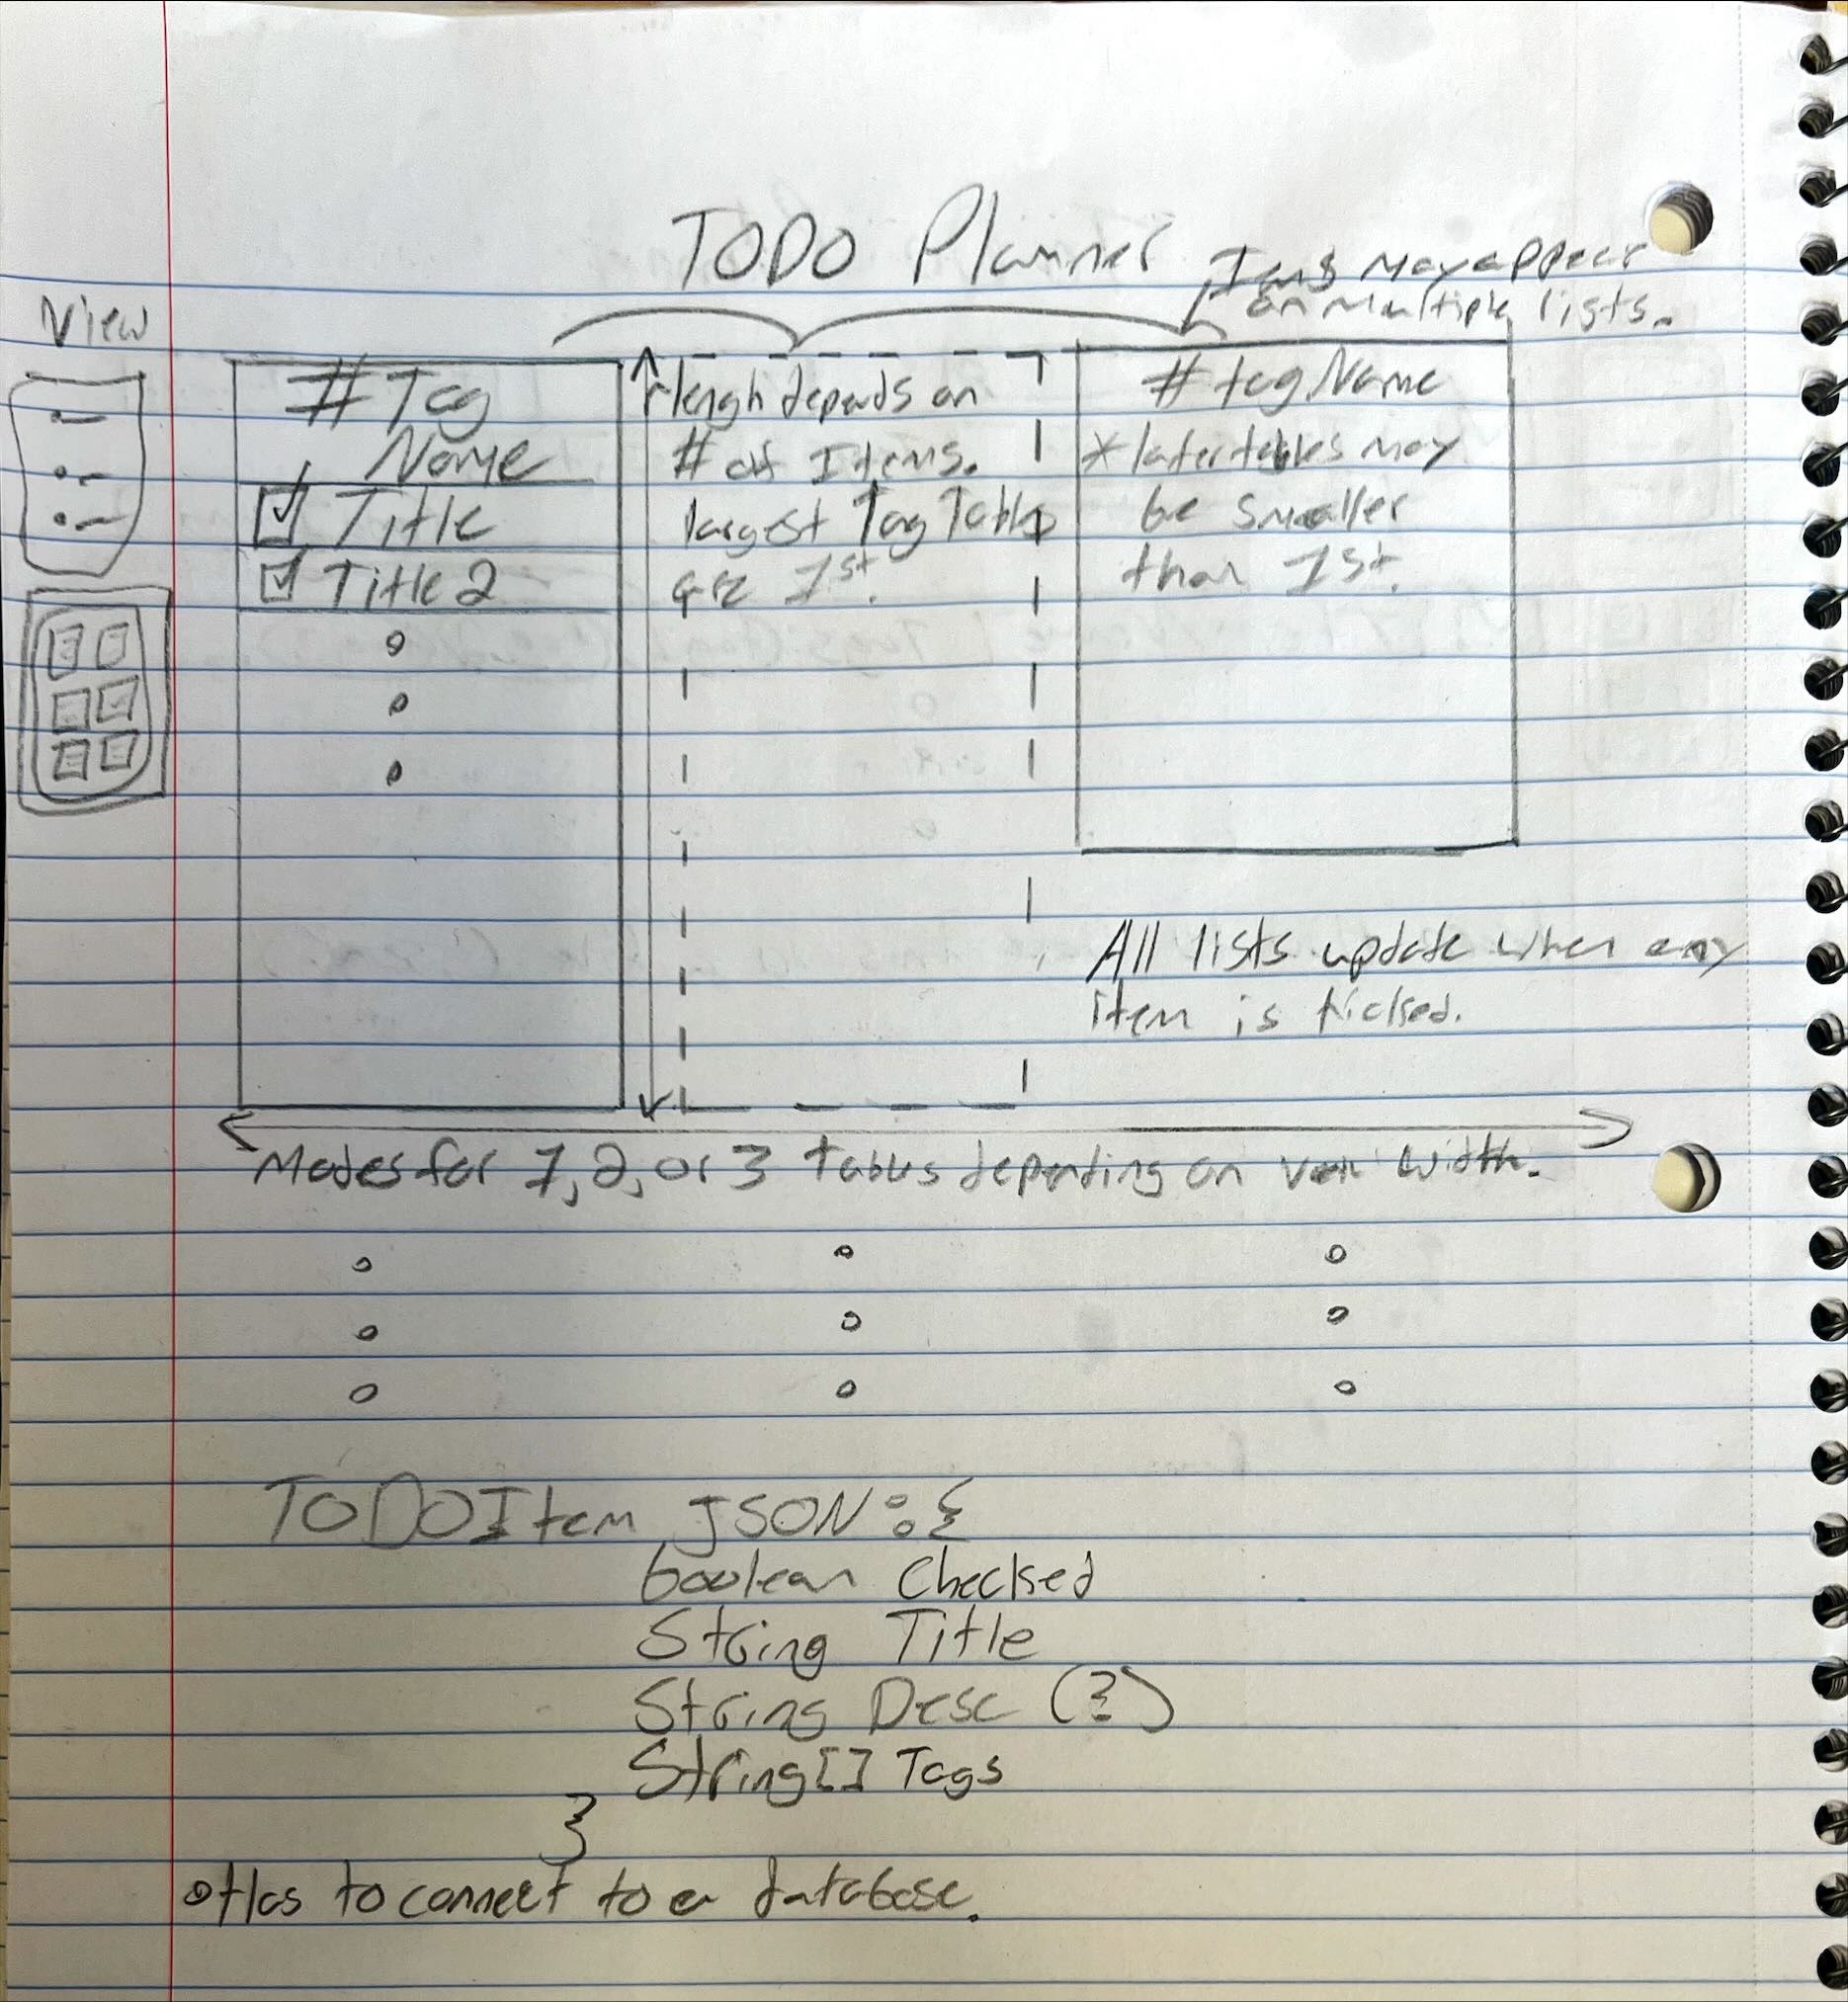 TODO Planner
Items may appear
on multiple lists.
View
# Tag
Name
Title
Title 2
lengh depends on
# of Items.
largest Tag Tables
are 1st.
# tag Name
* later tables may
be smaller
than 1st.
All lists update when any
item is ticked.
Modes for 1, 2, or 3 tables depending on width.
TODOItem JSON:{
boolean Checked
String Title
String Desc (?)
String[] Tags
}
Has to connect to a database.